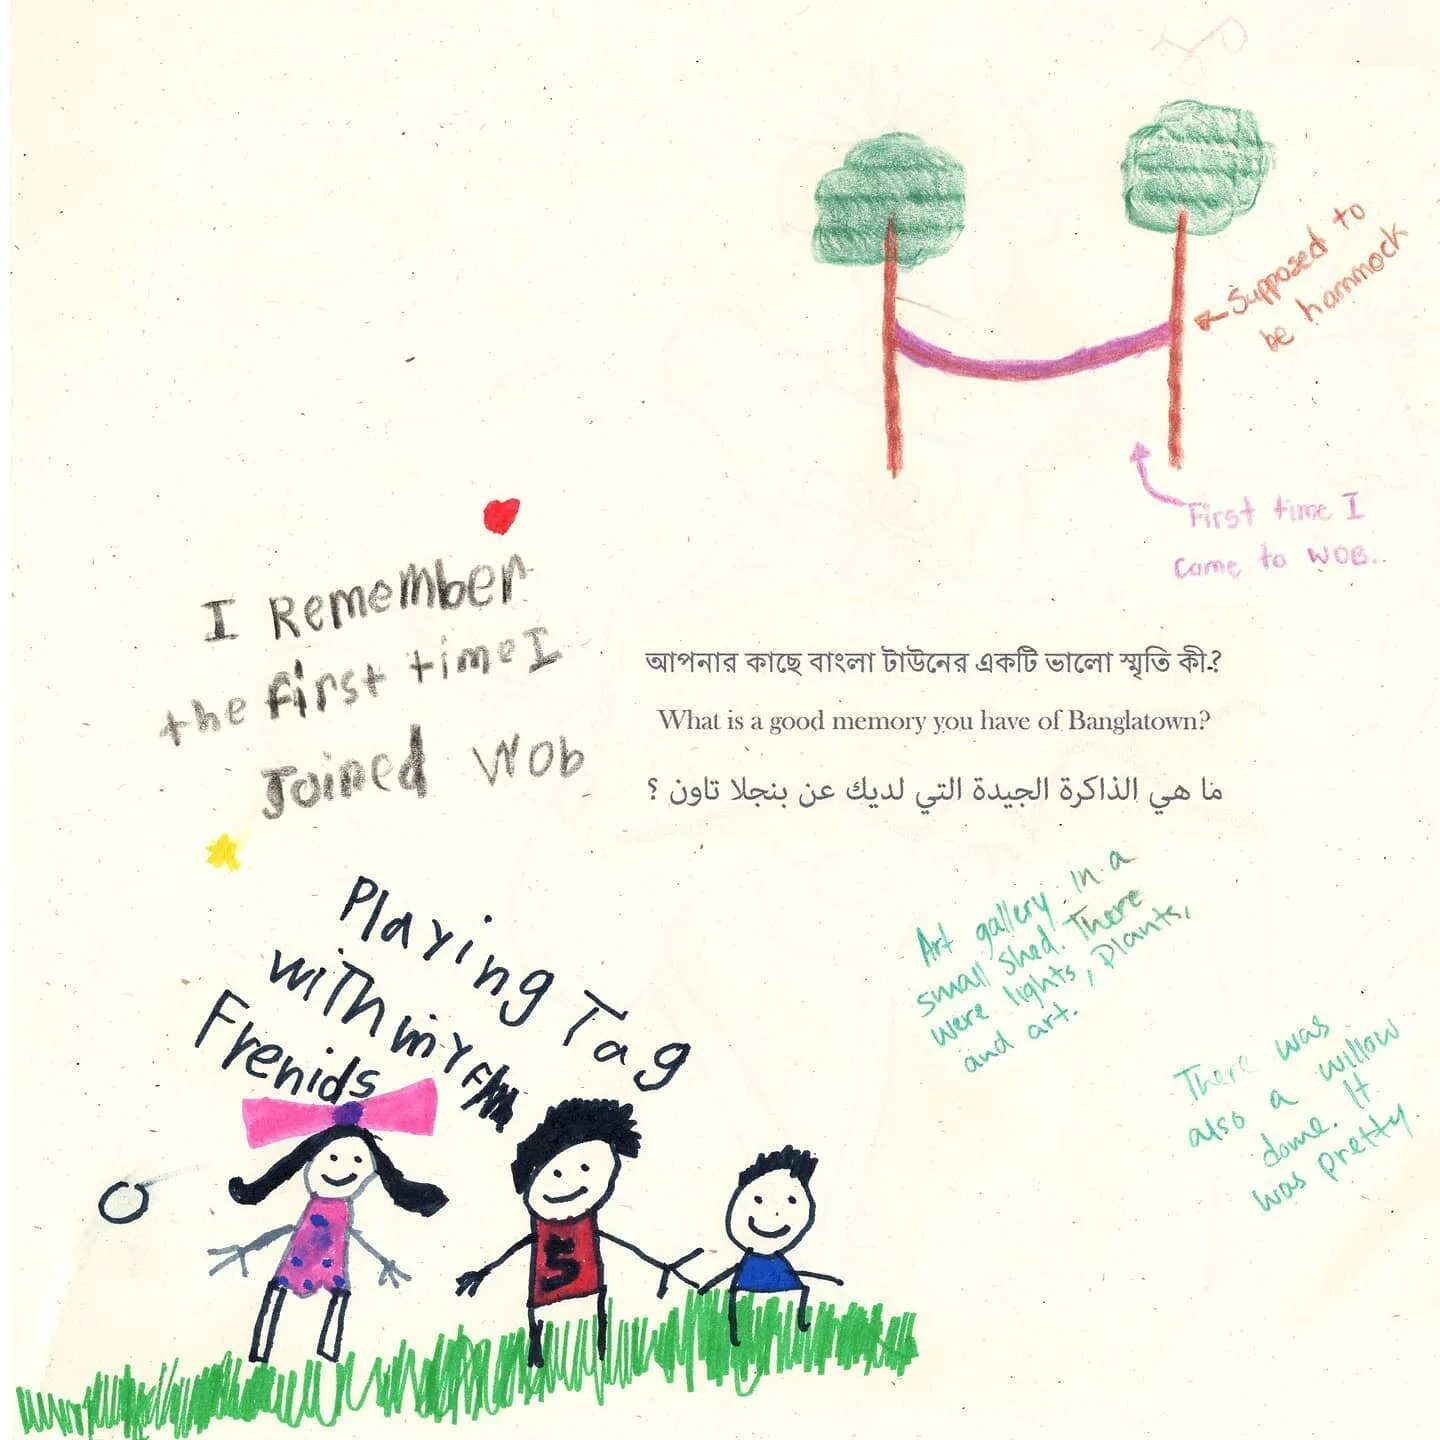 Supposed to
be hammock
First time I
came to WOB.
I Remember
the first time I
Joined WOb
আপনার কাছে বাংলা টাউনের একটি ভালো স্মৃতি কী?
What is a good memory you have of Banglatown?
ما هي الذاكرة الجيدة التي لديك عن بنجلا تاون ؟
Playing Tag
with my
Frenids
Art gallery in a
small shed. There
were lights, plants,
and art.
There was
also a willow
dome. It
was pretty.
5